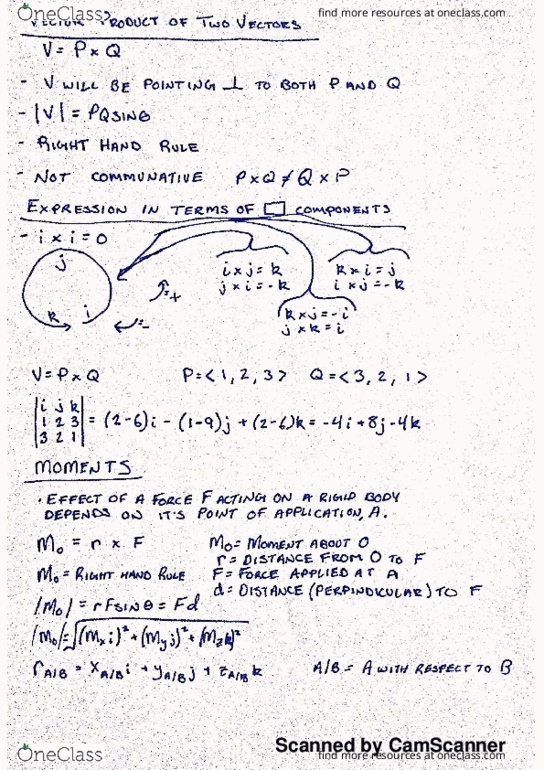 OneClass
find more resources at oneclass.com
VECTOR PRODUCT OF TWO VECTORS
V = P x Q
- V WILL BE POINTING ⊥ TO BOTH P AND Q
- |V| = PQ SINθ
- RIGHT HAND RULE
- NOT COMMUNATIVE P x Q ≠ Q x P
EXPRESSION IN TERMS OF □ COMPONENTS
- i x i = 0
j
k i
=+
=-
i x j = k
j x i = -k
k x i = j
i x j = -k
k x j = -i
j x k = i
V = P x Q P = <1, 2, 3> Q = <3, 2, 1>
|i j k|
|1 2 3| = (2-6)i - (1-9)j + (2-6)k = -4i + 8j - 4k
|3 2 1|
MOMENTS
· EFFECT OF A FORCE F ACTING ON A RIGID BODY
DEPENDS ON IT'S POINT OF APPLICATION, A.
Mo = r x F
Mo = MOMENT ABOUT O
r = DISTANCE FROM O TO F
Mo = RIGHT HAND RULE
F = FORCE APPLIED AT A
d = DISTANCE (PERPINDICULAR) TO F
|Mo| = rFsinθ = Fd
|Mo| = √(Mxi)² + (Myj)² + (Mzk)²
rA/B = XA/B i + yA/B j + zA/B k A/B = A WITH RESPECT TO B
Scanned by CamScanner
OneClass
find more resources at oneclass.com